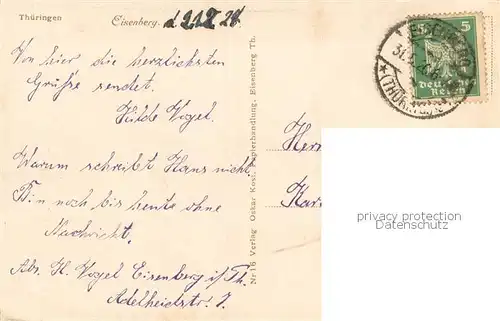 Thüringen Eisenberg.
Von hier die herzlichsten
Grüße sendet
Hilde Vogel.
Warum schreibt Hans nicht.
Bin noch bis heute ohne
Nachricht.
Abs. H. Vogel Eisenberg i/Th.
Adelheidstr. 7.
Nr 16 Verlag Oskar Kost, Papierhandlung, Eisenberg Th.
5
Deutsches
Reich
(THÜRINGEN)
Her
privacy protection
Datenschutz